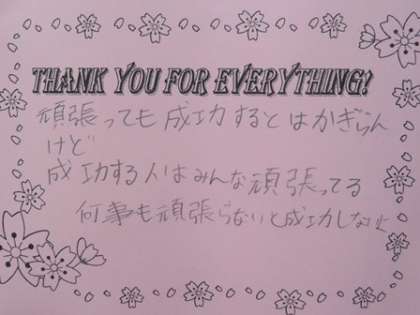 THANK YOU FOR EVERYTHING!
頑張っても成功するとはかぎらん
けど
成功する人はみんな頑張ってる
何事も頑張らないと成功しない